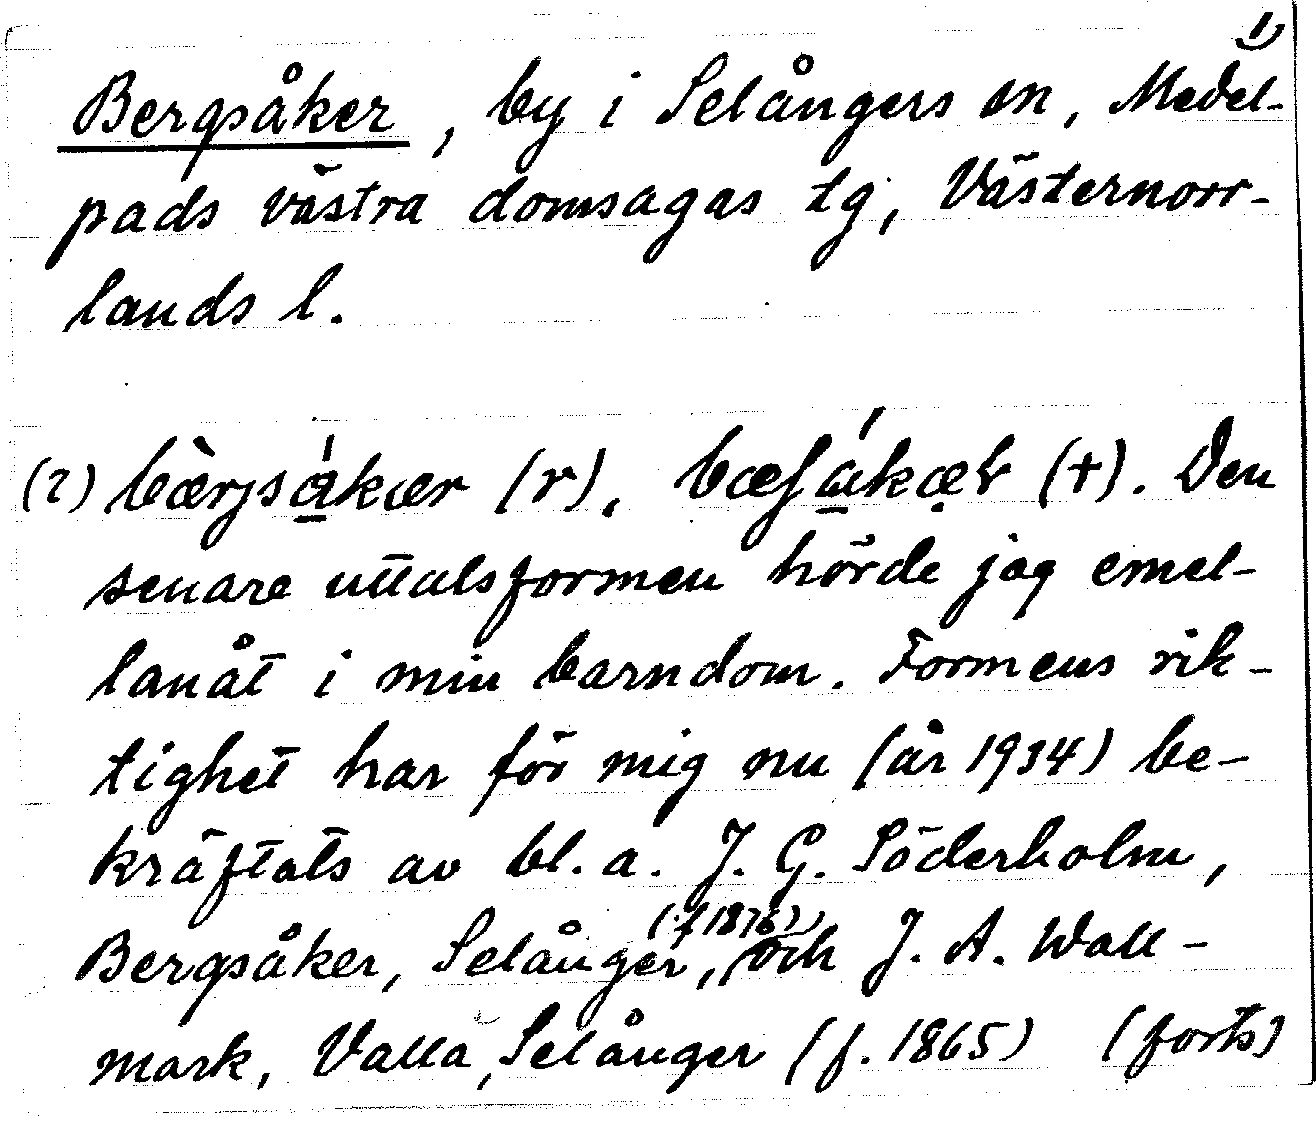 1)
Bergsåker, by i Selångers sn, Medel-
pads västra domsagas tg, Västernorr-
lands l.
(2) bærjsàkær (r), bæʃákæɽ (+). Den
senare uttalsformen hörde jag emel-
lanåt i min barndom. Formens rik-
tighet har för mig nu (år 1934) be-
kräftats av bl.a. J. G. Söderholm,
Bergsåker, Selånger, (f 1876), och J. A. Wall-
mark, Valla, Selånger (f. 1865) (forts)